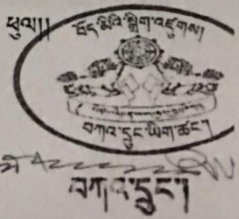 ཕུལ།།
བོད་མིའི་སྒྲིག་འཛུགས།
བཀའ་དྲུང་ཡིག་ཚང་།
བཀའ་དྲུང་།